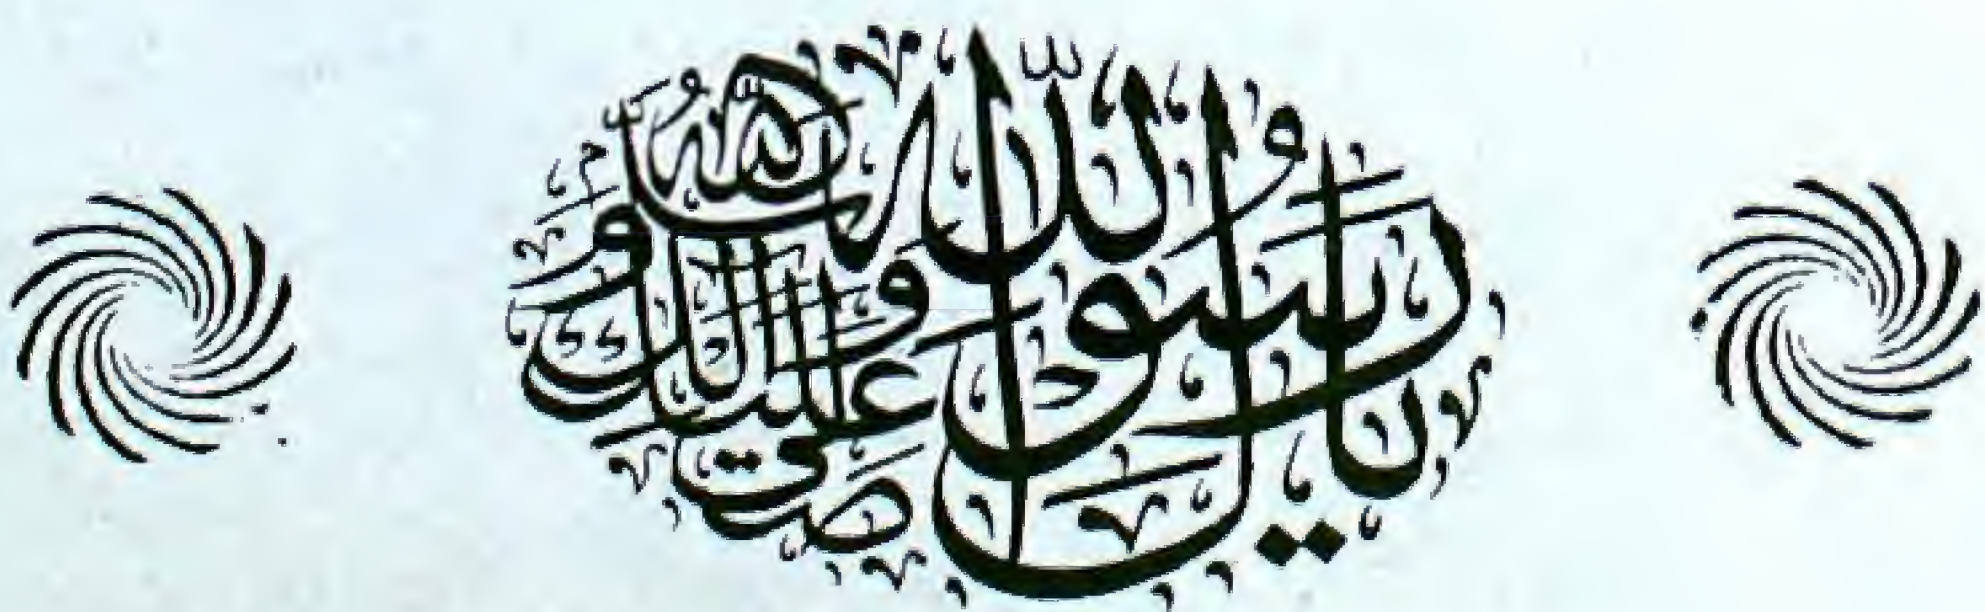 يا رسول الله صلى الله عليك وسلم